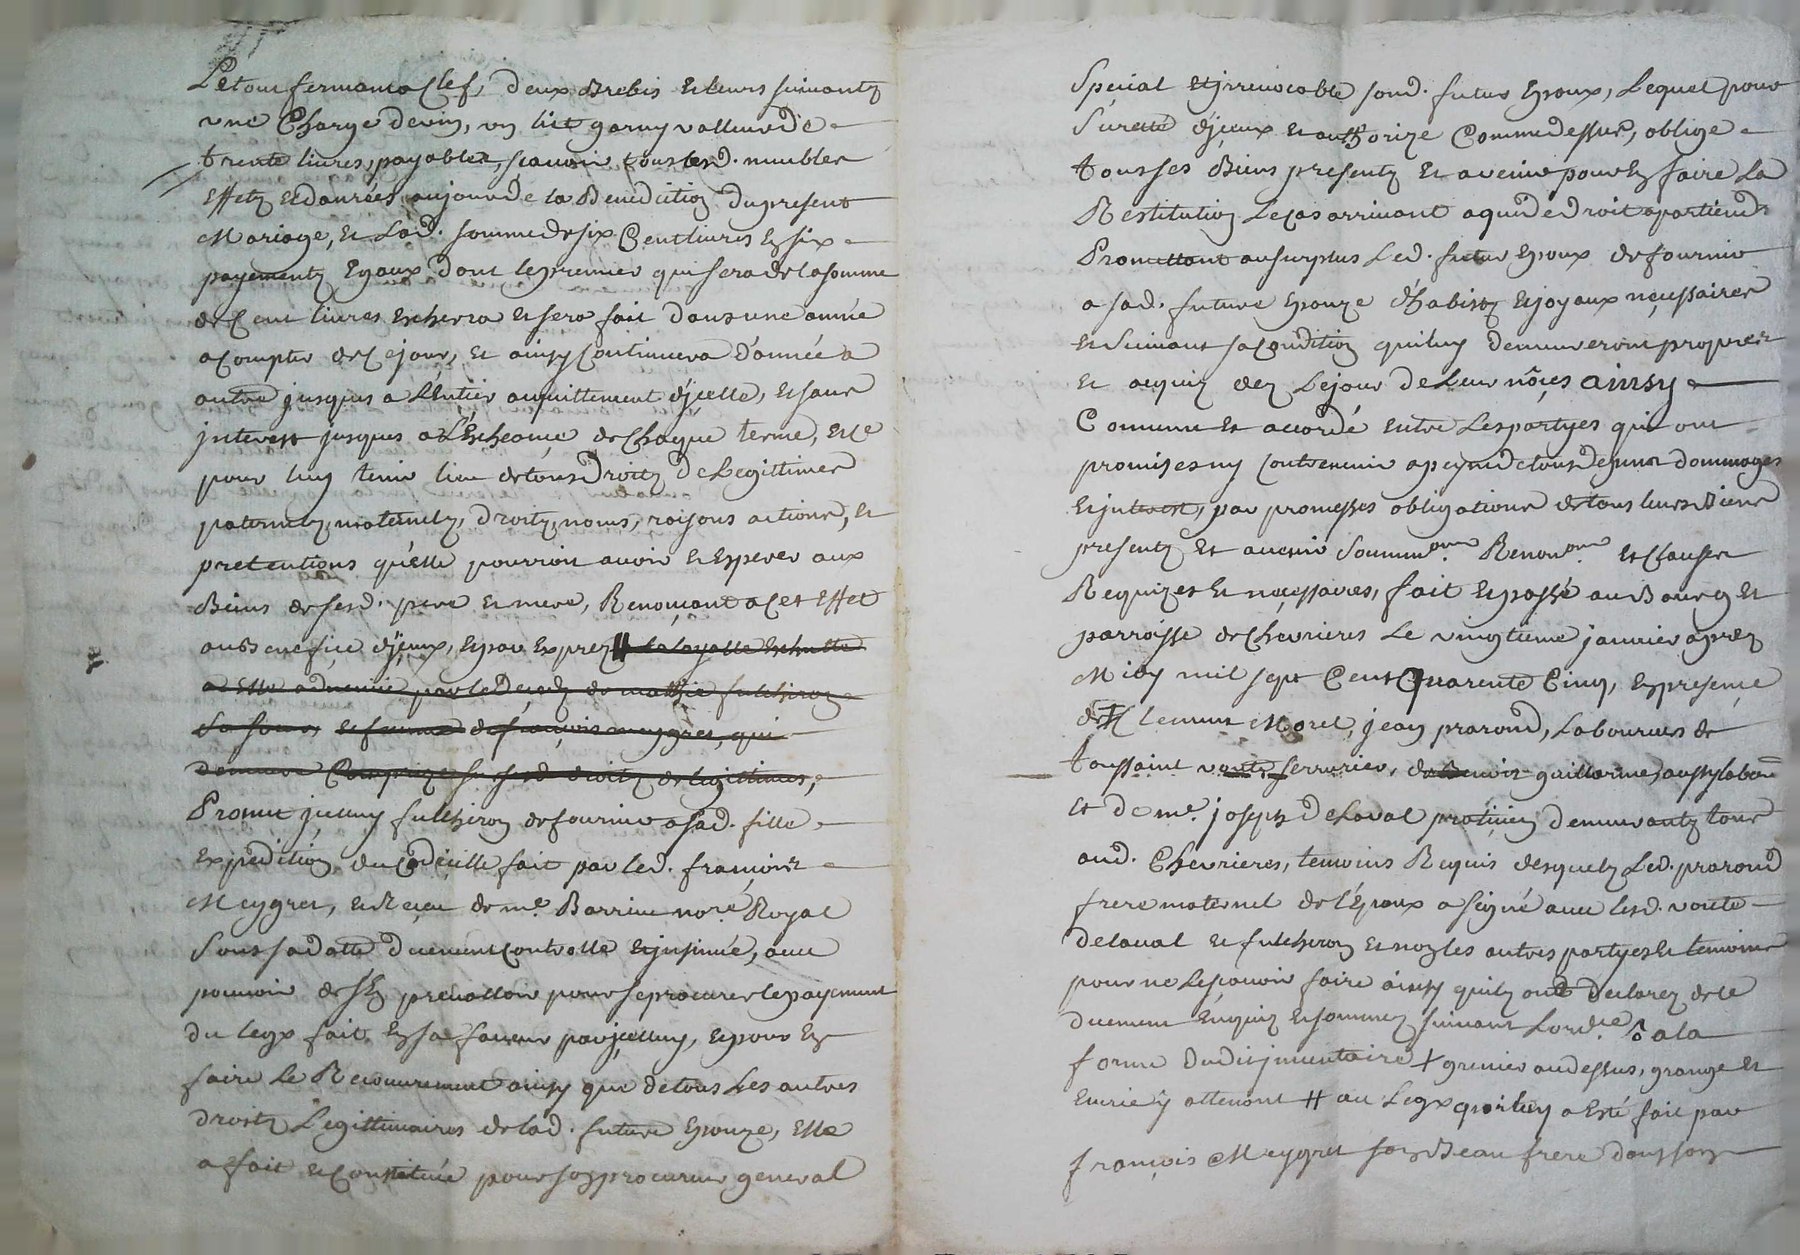 Le tout fermant a Clef, deux Brebis et leurs suivantz
une Charge de vin, un lit garny valleur de
trente livres, payables, sçavoir tous lesd. meubles
Effetz et danrées au jour de la Benediction du present
Mariage, et Lad. somme de six Cent livres En six
payementz Egaux, dont le premier qui sera de la somme
de Cent livres Escherra et sera fait dans une année
a Compter de Ce jour, et ainsy Continuera d'année a
autre jusques a L'Entier acquittement d'jcelle, et sans
jnterest jusques a L'Escheance de Chaque terme, et Ce
pour luy tenir lieu de tous Droitz de Legittimes
paternelz, maternelz, droitz, noms, raisons actions, et
pretentions qu'elle pourroit avoir et Esperer aux
Biens de sesd. pere et mere, Renonçant a Cet Effet
au Benefice d'jceux, Et par Exprez # la layalle Escheutte
a Elle advenuë par le Deced de mathie fulchiron
sa soeur, et femme de françois meygret, qui
demeure Comprize sur sesd. droitz de legittimes,
Promet jceluy fulchiron de fournir a sad. fille
Expedition du Codicille fait par led. françois
Meygret, et Reçeu de me. Barrieu nore. Royal
sous sa datte duement Controllé et jnsinué, avec
pouvoir de s'En prevalloir pour se procurer le payement
du legx fait En sa faveur par jceluy, et pour En
faire Le Recouvrement ainsy que de tous Les autres
droitz Legittimaires de lad. future Epouze, Elle
a fait et Constitué pour son procureur general
Special et jrrevocable sond. futur Epoux, Lequel pour
Sureté d'jceux et authorizé Comme dessus, oblige
tous ses Biens presentz et avenir pour En faire La
Restitution Le Cas arrivant a qui de droit apartiendra
Promettant au surplus Led. futur Epoux de fournir
a sad. future Epouze d'habitz et joyaux neçessaires
et suivant sa Condition qui luy demeureront propres
et acquiz dez Le jour de Leur nôçes ainsy
Convenu et accordé entre Les partyes qui ont
promises ny Contrevenir a peyne de tous depens dommages
et jnterest, par promesses obligations de tous leurs Biens
presentz et avenir Soummons. Renonons. et Clauses
Requizes et neçessaires, fait et passé au Bourg et
parroisse de Chevrieres Le vingtieme janvier aprez
Midy mil sept Cent Quarente Cinq, En presençe
de Clement Morel, jean prarond, Laboureurs de
toussaint voute, serrurier, de Benoit guillarme, aussy labour
et de me. joseph Delaval pratiçien demeurantz tous
aud. Chevrieres, temoins Requis desquelz Led. prarond
frere maternel de l'Epoux a signé avec lesd. voute
delaval et fulchiron et non les autres partyes et temoins
pour ne Le sçavoir faire ainsy qu'ilz ont declarez de Ce
duement Enquiz et sommez suivant L'ordce. a la
forme dudit jnventaire + grenier au dessus, grange et
Ecurie y attenant # au Legx qui luy a Esté fait par
françois Meygret son Beau frere dans son